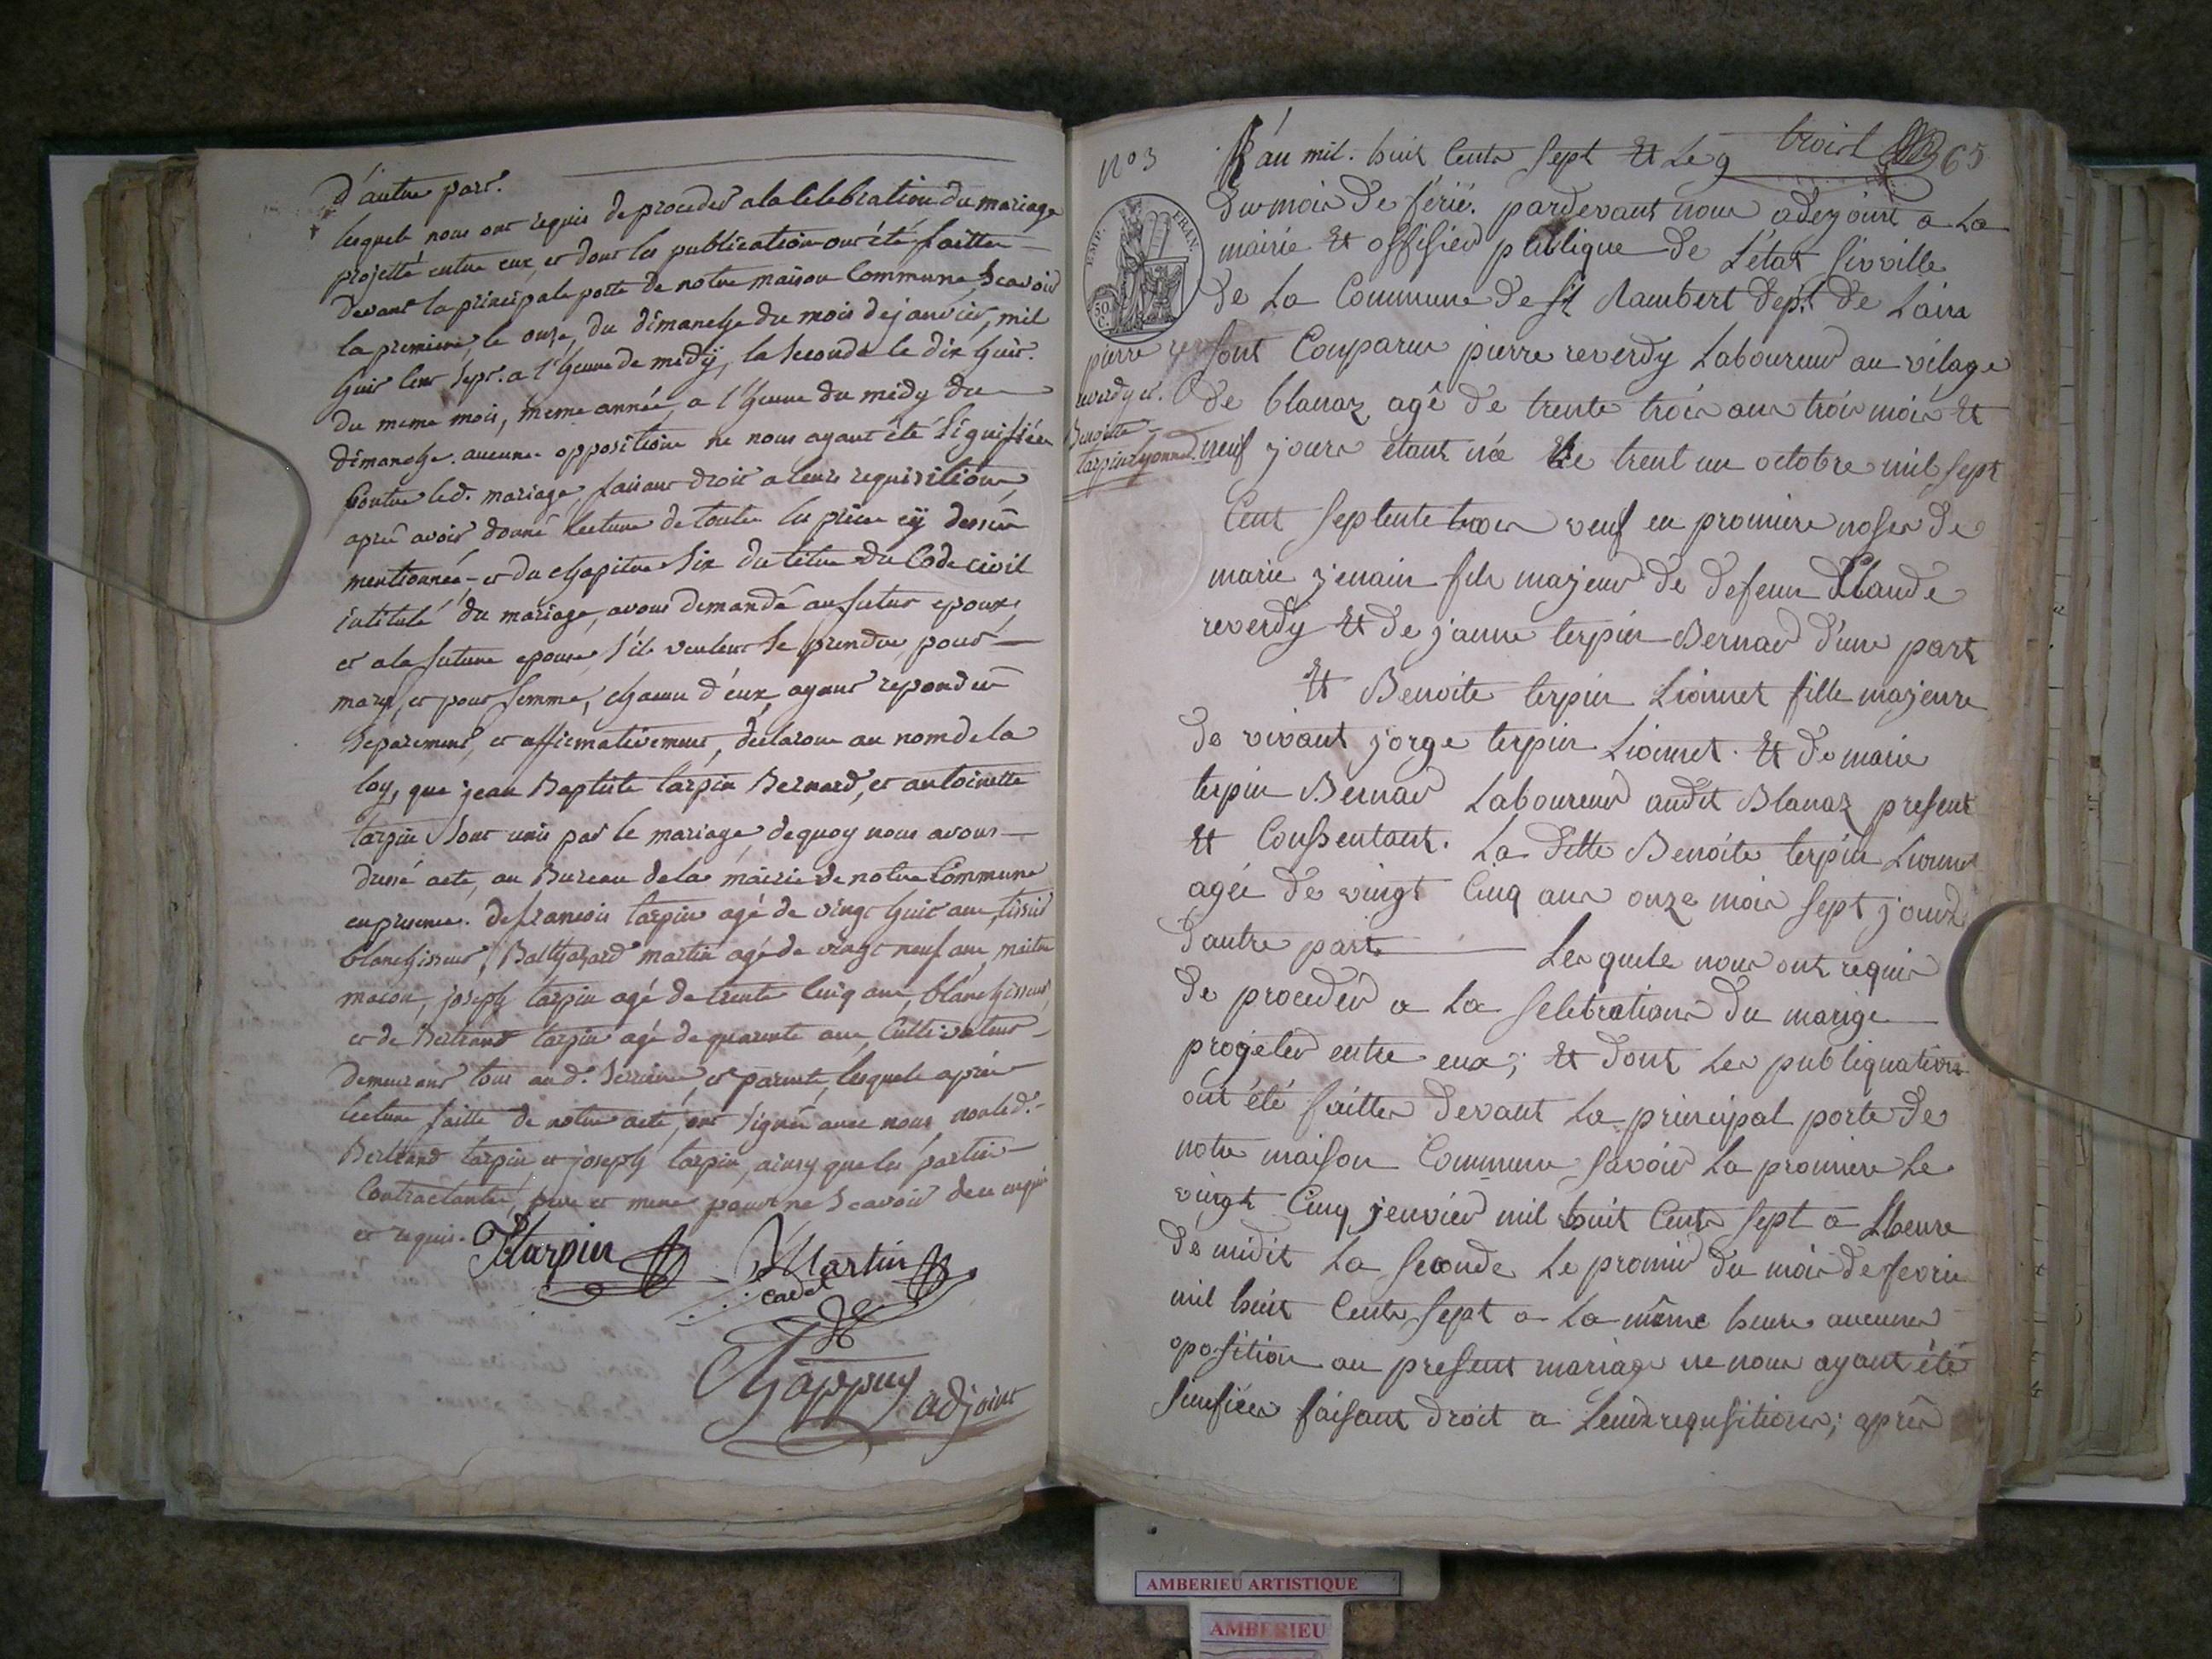 d'autre part.
lesquels nous ont requis de proceder a la celebration du mariage
projetté entre eux, et dont les publications ont été faittes
devant la principale porte de notre maison Commune, Scavoir
la premiere, le onze, du dimanche du mois de janvier, mil
huit cent sept. a l'heure de medÿ, la Seconde le dix huit.
du meme mois, meme année, a l'heure du medy du
dimanche. aucune opposition ne nous ayant été Signifiée
Contre led. mariage, faisant droit a leurs requisitions,
aprés avoir donné lecture de toutes les pieces cÿ dessus
mentionnée, et du chapitre Six du titre du Code civil
intitulé du mariage, avons demandé au futur epoux,
et a la future epouse, s'ils veulent Se prendre pour
mary, et pour femme, chacun d'eux, ayant repondu
Separement, et affirmativement, declarons au nom de la
loy, que jean Baptiste tarpin Bernard, et antoinette
tarpin Sont unis par le mariage, dequoy nous avons
dressé acte, au Bureau de la mairie de notre Commune
en presence. de francois tarpin agé de vingt huit ans, tissier
blanchisseur, Balthazard martin agé de vingt neuf ans, maitre
macon, joseph tarpin agé de trente Cinq ans, blanchisseur,
et de Bertrand tarpin agé de quarante ans, Cultivateur
demeurant tous aud. Serrieres, et parents, lesquels aprés
lecture faitte de notre acte, ont Signés avec nous non led.
Bertrand tarpin et joseph tarpin, ainsy que les parties
Contractantes, pere et mere pour ne Scavoir de ce enquis
et requis.
ftarpin Martin
cadet
Chappuy
adjoint
N° 3
trois 65
L'an mil. huit Cents Sept Et Le 9
du mois de férié. pardevant nous adejoint a La
mairie Et offisier publique de L'état Sivville
de La Commune de St Rambert dept. de Lain
EMP. FRAN.
50 C.
pierre
reverdy et.
Benoitte
tarpin lyonnet
Sont Comparus pierre reverdy Laboureur au vilage
de blanaz agé de trente trois ans trois mois Et
neuf jours étant née Le trent un octobre mil sept
Cent septente trois veuf en promiere noses de
marie jenain fils majeur de defeun Claude
reverdy Et de janne terpin Bernar d'une part
Et Benoite terpin Lionnet fille majeure
de vivant jorge terpin Lionnet. Et de marie
terpin Bernar Laboureur audit Blanaz present
Et Conssentant. La ditte Benoite terpin Lionnet
agée de vingt Cinq ans onze mois sept jours
dautre part Les quels nous ont requis
de proceder a La selebrations du marige
progeter entre eux; Et dont Les publiquations
ont été faittes devant La principal porte de
notre maison Commune savoir La promiere Le
vingt Cinq jenvier mil huit Cents sept a Lheure
de midit La seconde Le promier du mois de fevrie
mil huit Cents sept a La même heure aucunes
oposition au present mariage ne nous ayant été
sinifiées faisant droit a Leurs requsitions; aprés
AMBERIEU ARTISTIQUE
AMBERIEU